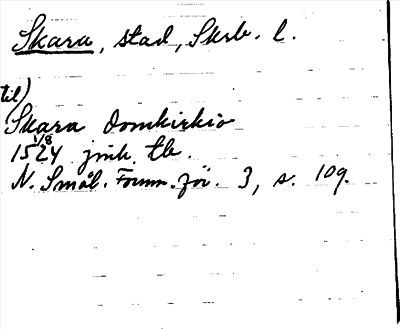 Skara, stad, Skrb. l.
til)
Skara domkirkio
1524 1/8 jnk. tb.
N. Smål. Fornm. för. 3, s. 109.